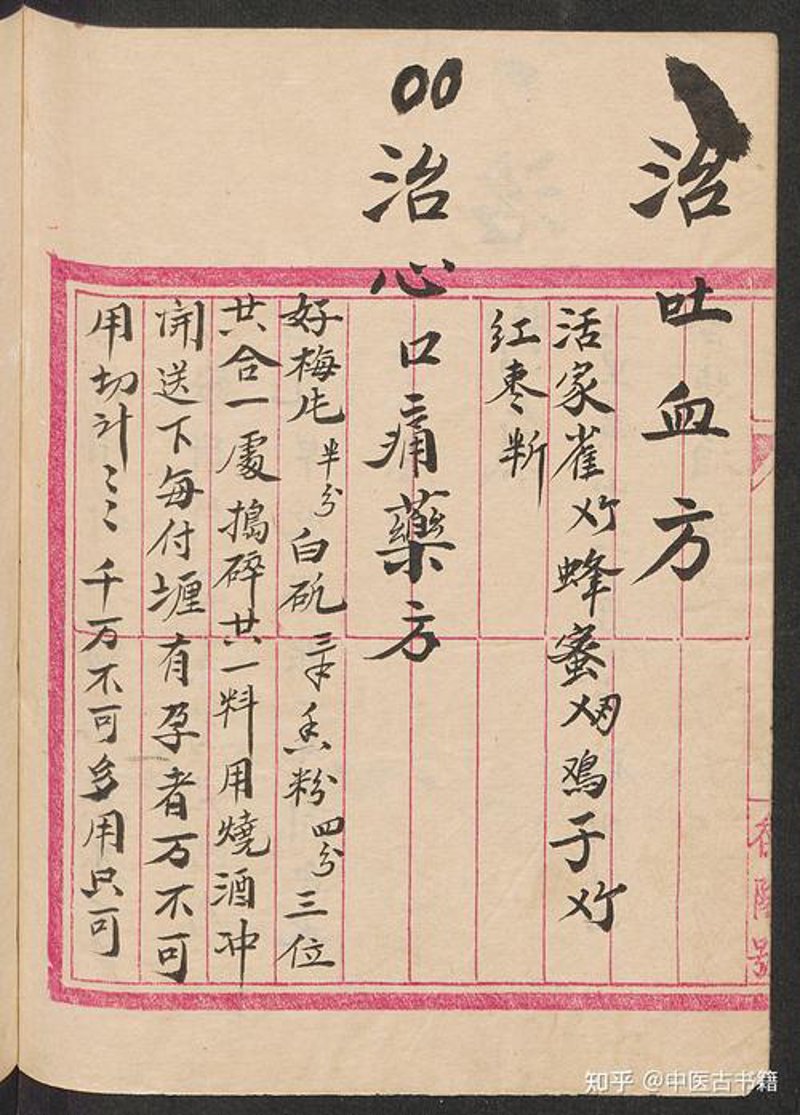 治吐血方
活家雀 蜂蜜 鸡子
红枣
治心口痛藥方
好梅片半分白矾三 粉四分三位
共合一處搗碎共一料用燒酒冲
開送下每付 有孕者万不可
用切计ミミ千万不可多用只可
知乎 @中医古书籍